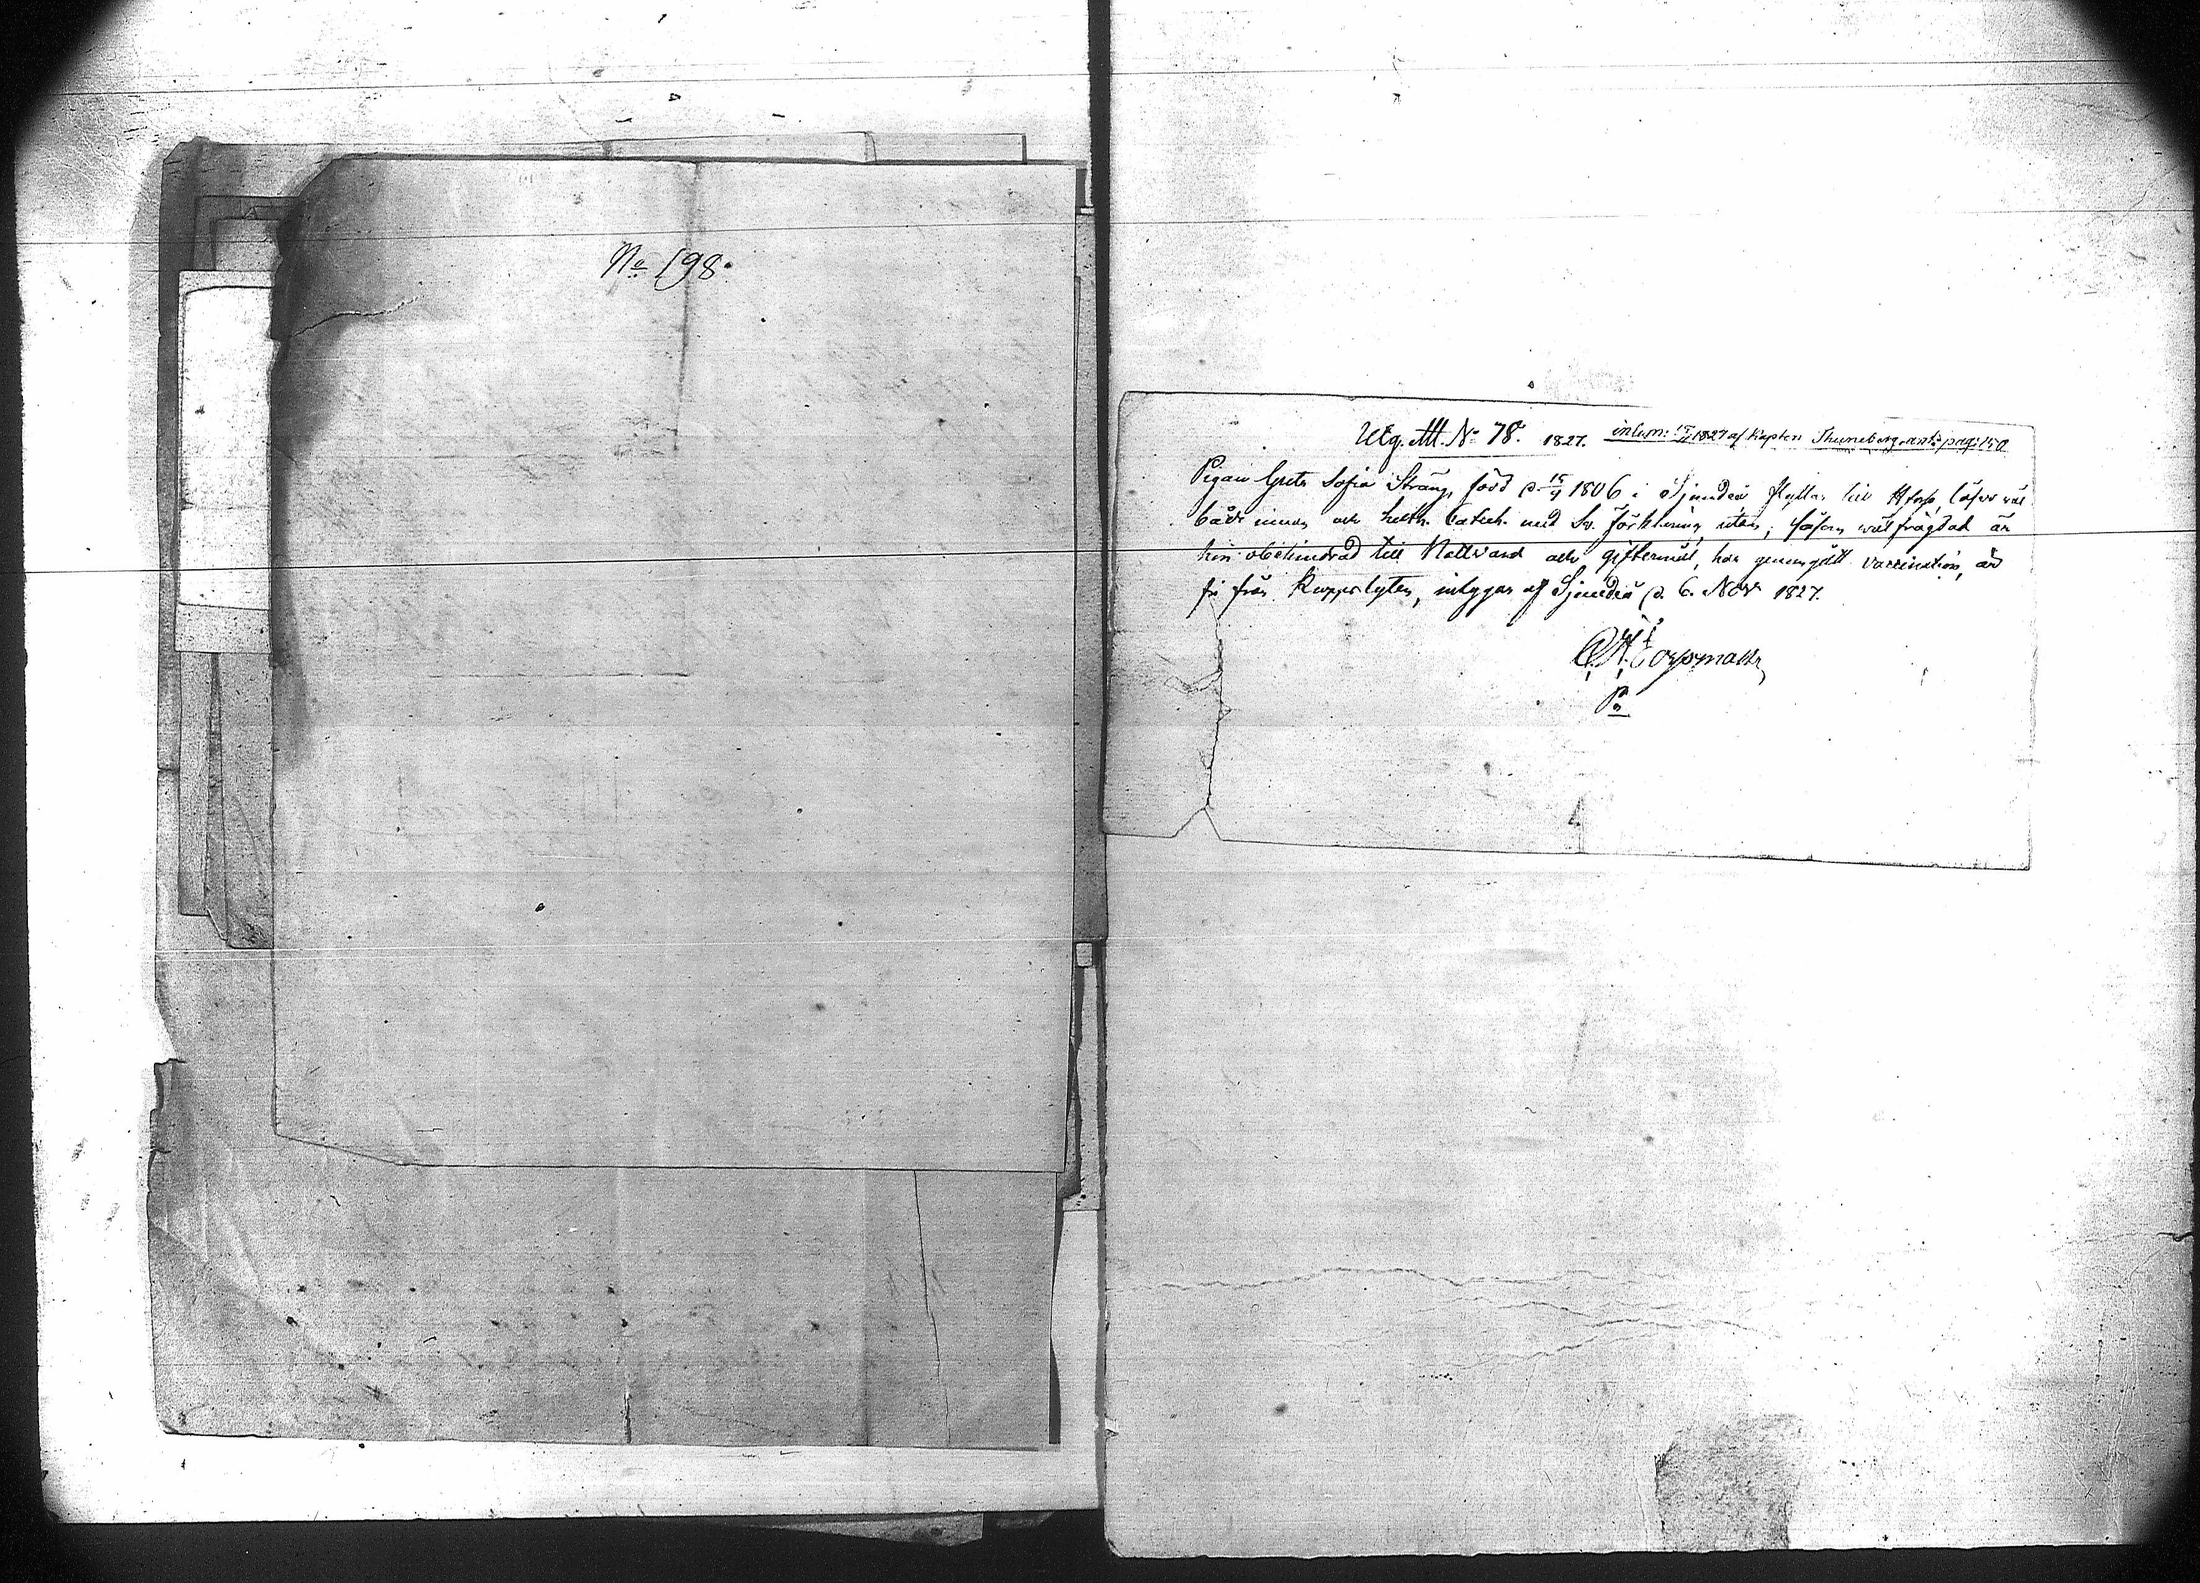 No 198.
Utg. Att. No 78. 1827. inlem: 1827 af Kapten Thuneberg, ant: pag: 150
Pigan Greta Sofia Sträng, född d. 15/4 1806 i Sjundeå flyttar till läser väl
både innan och hela Catech. med Sv. Förklaring utan, såsom wälfrägdad är
hon obehindrad till Nattvard och giftermål, har genomgått vaccination, är
fri från Kopporlyten, intygar af Sjundeå d. 6. Nov 1827.
Pr